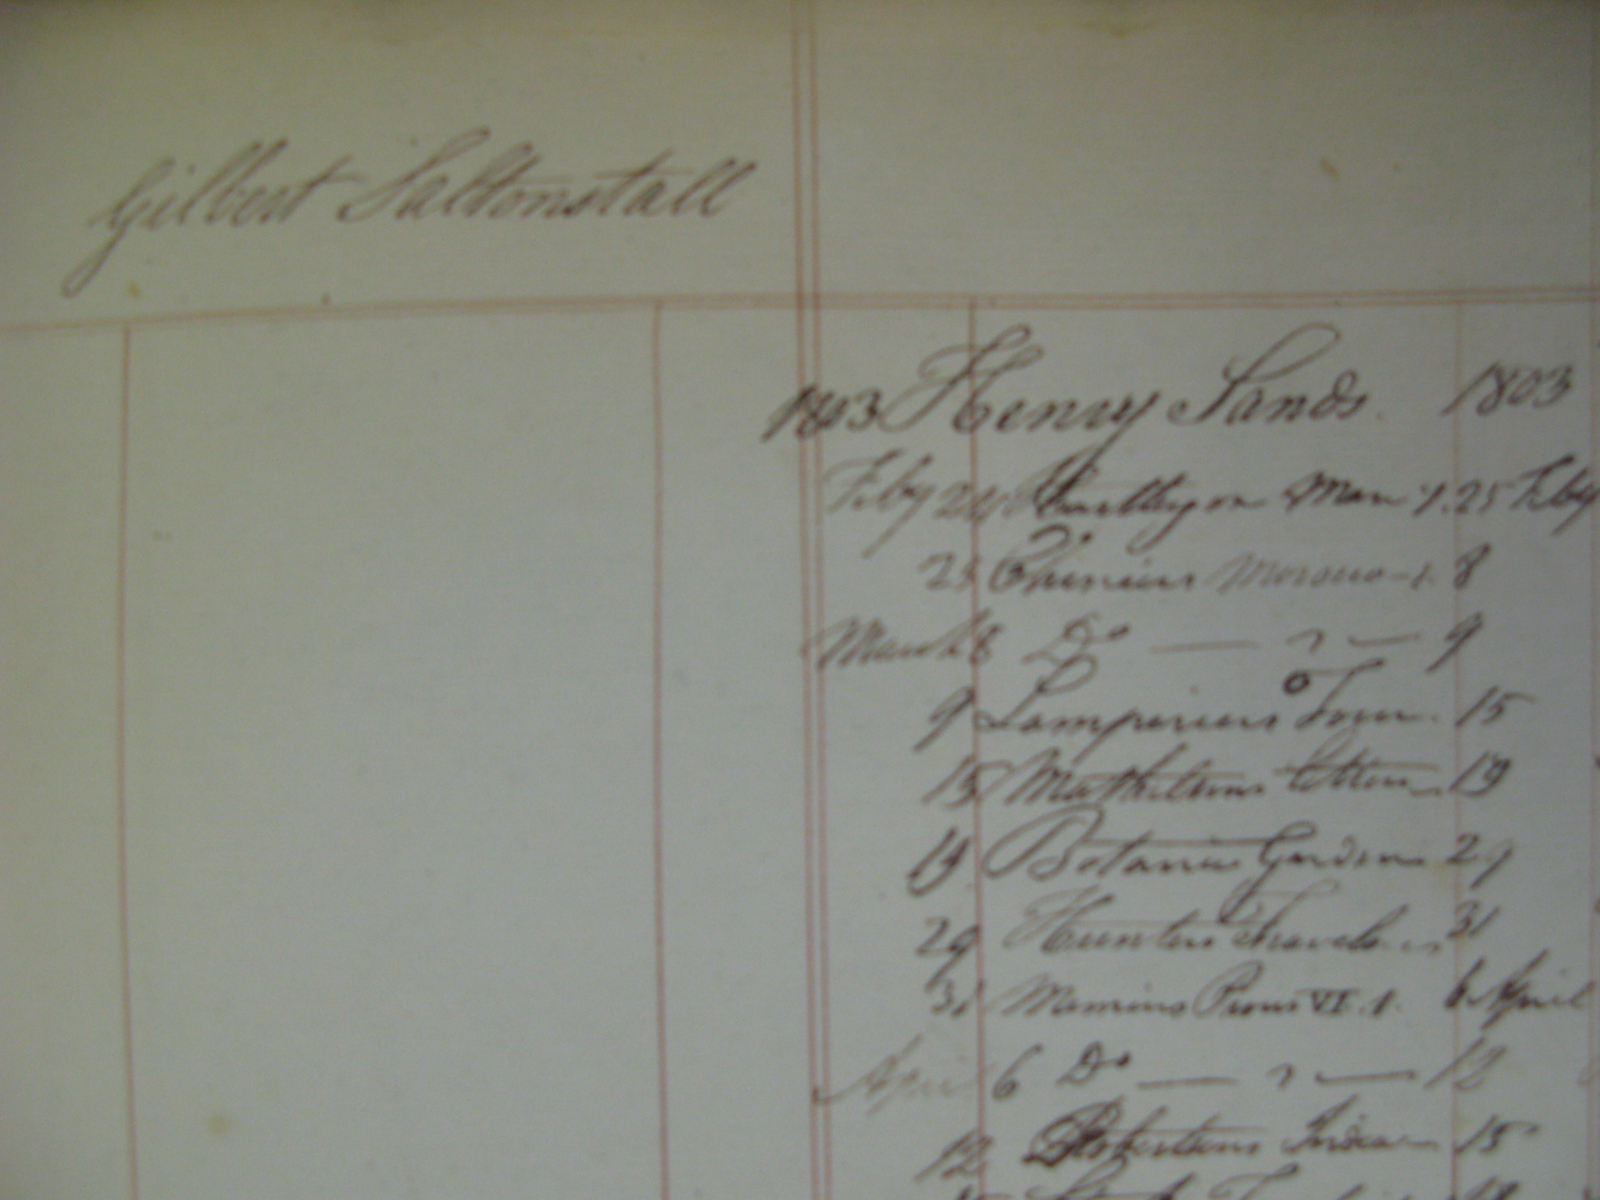 Gilbert Saltonstall
1803 Henry Sands. 1803
Feby 24 Smellie on Man 1. 25 Feby
25 Cheniers Morocco - 1. 8
March 8 Do — 2 — 9
9 Lempriers Tour. 15
15 Mathesons Letters 19
19 Botanic Garden 29
29 Hunters Travels 31
31 Memoirs Pious VI. 1. 6 April
April 6 Do — 2 — 12
12 Robertsons India 15